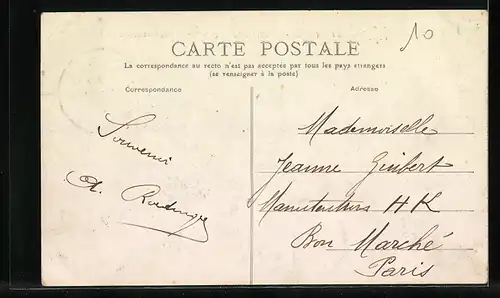 10
CARTE POSTALE
La correspondance au recto n'est pas acceptée par tous les pays étrangers
(se renseigner à la poste)
Correspondance
Adresse
Souvenir
A.
Mademoiselle
Jeanne Guibert
HK
Bon Marché
Paris